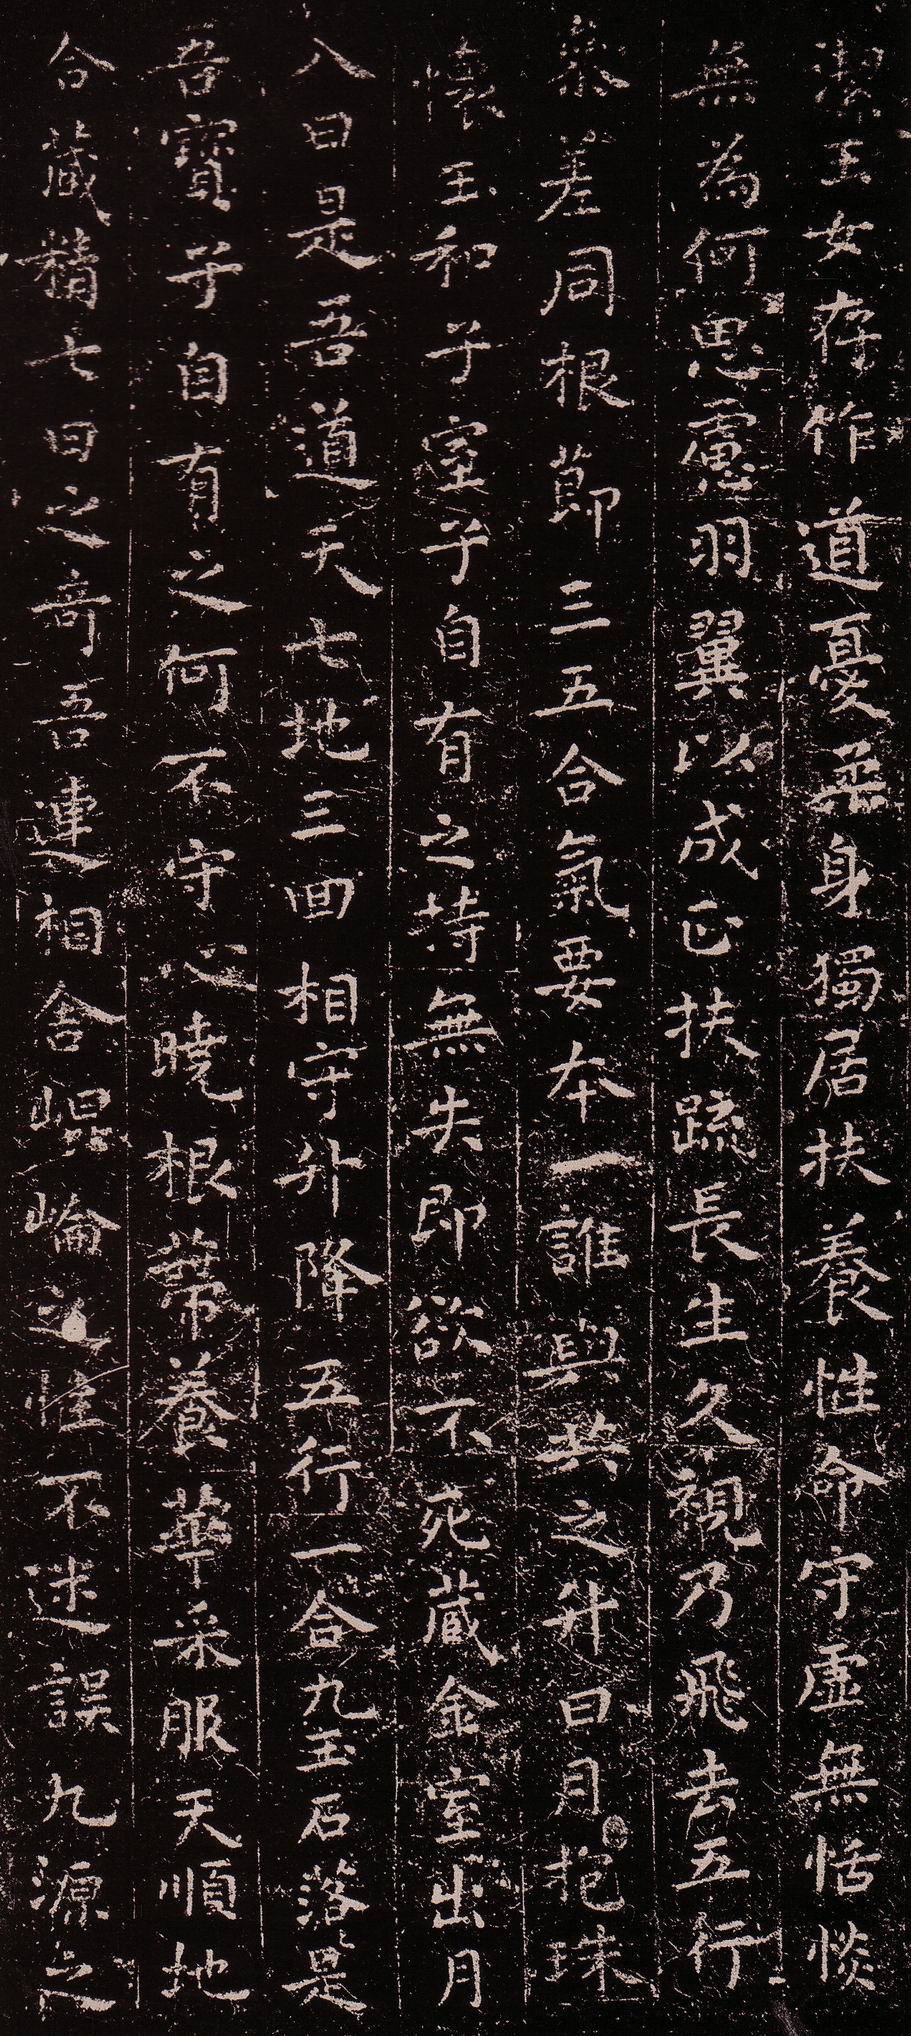 潔玉女存作道憂柔身獨居扶養性命守虛無恬惔
無為何思慮羽翼以成正扶疏長生久視乃飛去五行
叅差同根節三五合氣要本一誰與共之升日月抱珠
懷玉和子室子自有之持無失即欲不死藏金室出月
入日是吾道天七地三回相守升降五行一合九玉石落是
吾寶子自有之何不守心曉根蒂養華采服天順地
合藏精七日之奇吾連相舍崐崘之性不迷誤九源之